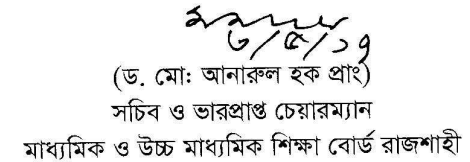 ৩/৫/১৭
(ড. মোঃ আনারুল হক প্রাং)
সচিব ও ভারপ্রাপ্ত চেয়ারম্যান
মাধ্যমিক ও উচ্চ মাধ্যমিক শিক্ষা বোর্ড রাজশাহী